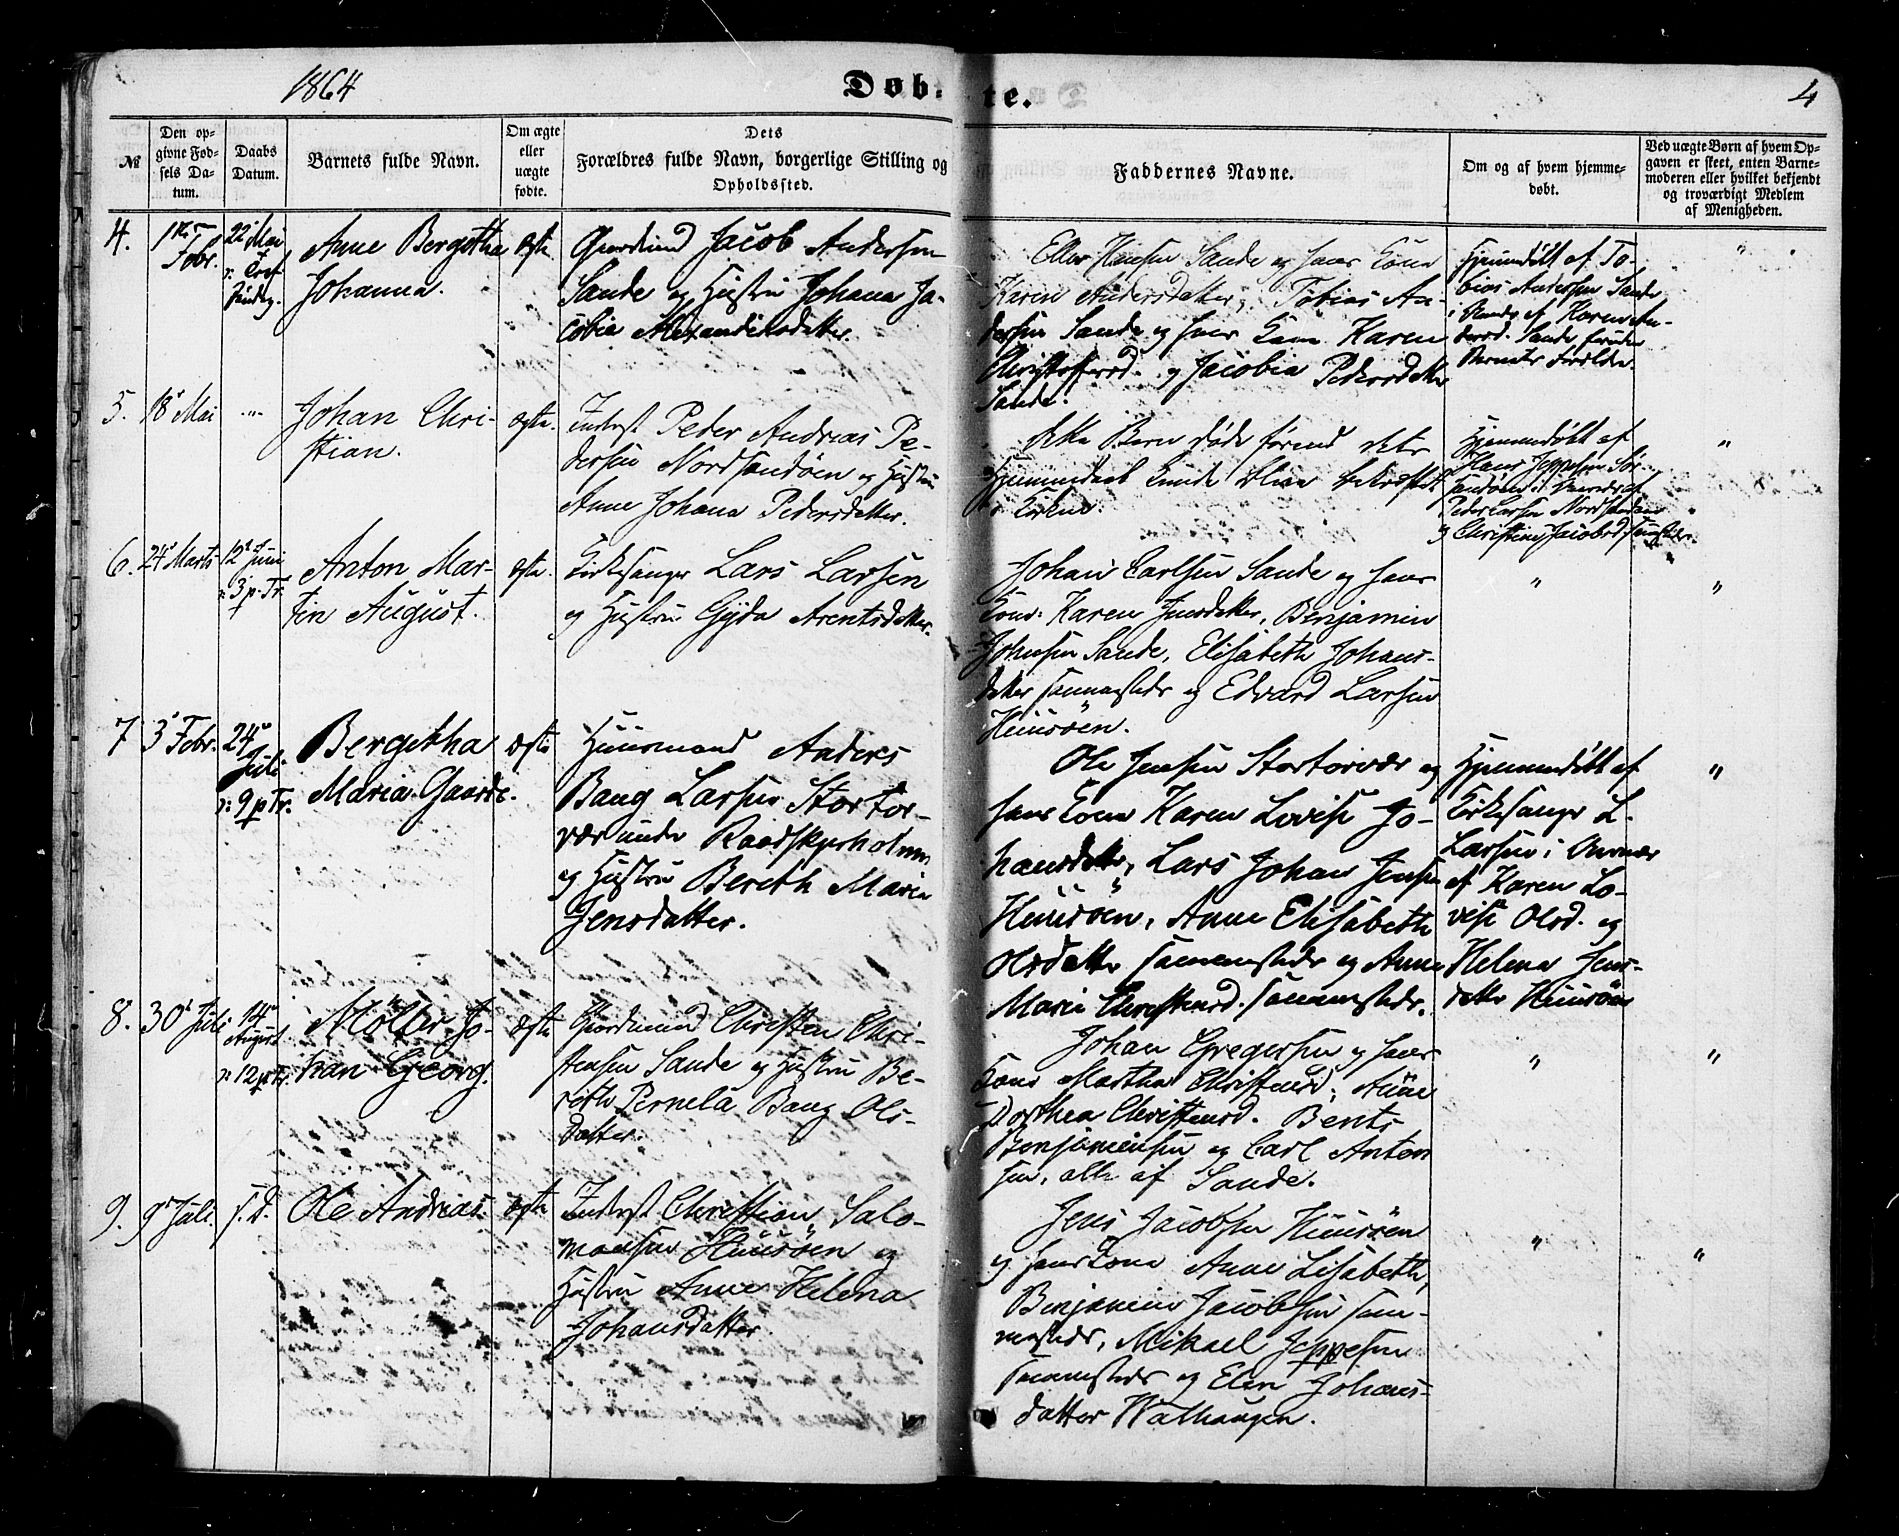 1864
Døb-
te.
4
№
Den op-
givne Fød-
sels Da-
tum.
Daabs
Datum.
Barnets fulde Navn.
Om ægte
eller
uægte
fødte.
Dets
Forældres fulde Navn, borgerlige Stilling og
Opholdssted.
Faddernes Navne.
Om og af hvem hjemme-
døbt.
Ved uægte Børn af hvem Op-
gaven er skeet, enten Barne-
moderen eller hvilket bekjendt
og troværdigt Medlem
af Menigheden.
4.
1ste
Febr.
22 Mai
Tref.
Søndag.
Anne Bergitha
Johanna.
ægte
Gaardmand Jacob Andersen
Sande og Hustru Johana Ja-
cobia Alexandersdatter.
Eller Hansen Sande og hans Kone
Karen Andersdatter, Tobias An-
dersen Sande og hans Kone Karen
Christoffersd. og Jacobia Pedersdatter
Sande.
Hjemmedøbt af To-
bias Andersen Sande
i Nærv. af Karen An-
dersd. Sande foruden
Barnets Forældre.
"
5.
18de Mai
"
Johan Chri-
stian.
ægte.
Inderst Peder Andreas Pe-
dersen Nordsandøen og Hustru
Anne Johana Pedersdatter.
dette Barn døde førend dets
Hjemmedaab kunde blive bekræftet
i Kirken.
Hjemmedøbt af
Hans Jeppesen Sør-
sandøen i Nærvær af
Peder Larsen Nordsandøen
og Christine Jacobsd. sammesteds.
"
6.
24de Marts
12te Juni
ɔ: 3 p. Tr.
Anton Mar-
tin August.
ægte.
Kirkesanger Lars Larsen
og Hustru Gyda Arentsdatter.
Johan Carlsen Sande og hans
Kone Karen Jensdatter, Benjamin
Johnsen Sande, Elisabeth Johans-
datter sammesteds og Edvard Larsen
Huusøen.
"
"
7
3de Febr.
24de
Juli
ɔ: 9 p Tr.
Bergitha
Maria Gaarde.
ægte
Huusmand Anders
Bang Larsen Stortor-
vær under Raadskjærholmen
og Hustru Bereth Maria
Jensdatter.
Ole Jensen Stortorvær og
hans Kone Karen Lovise Jo-
hansdatter, Lars Johan Jensen
Huusøen, Anne Elisabeth
Olsdatter sammesteds og Anne
Maria Christensd. sammesteds.
Hjemmedøbt af
Kirkesanger L.
Larsen i Nærvær
af Karen Lo-
vise Olsd. og
Helena Jens-
datter Huusøen
"
8.
30te Juli
14de
August
ɔ: 12 p Tr.
Møller Jo-
han Georg.
ægte
Gaardmand Christen Chri-
stensen Sande og Hustru Be-
reth Pernela Bang Ols-
datter.
Johan Gregersen og hans
Kone Martha Christensd., Anne
Dorthea Christensd. Bents
Benjaminsen og Carl Anton
sen, alle af Sande.
"
"
9.
9de Juli.
s. D.
Ole Andreas.
ægte
Inderst Christian Salo-
monsen Huusøen og
Hustru Anne Helena
Johansdatter
Jens Jacobsen Huusøen
og hans Kone Anne Lisabeth,
Benjamin Jacobsen sam-
mesteds, Mikael Jeppesen
sammesteds og Elen Johans-
datter Walhaugen.
"
"